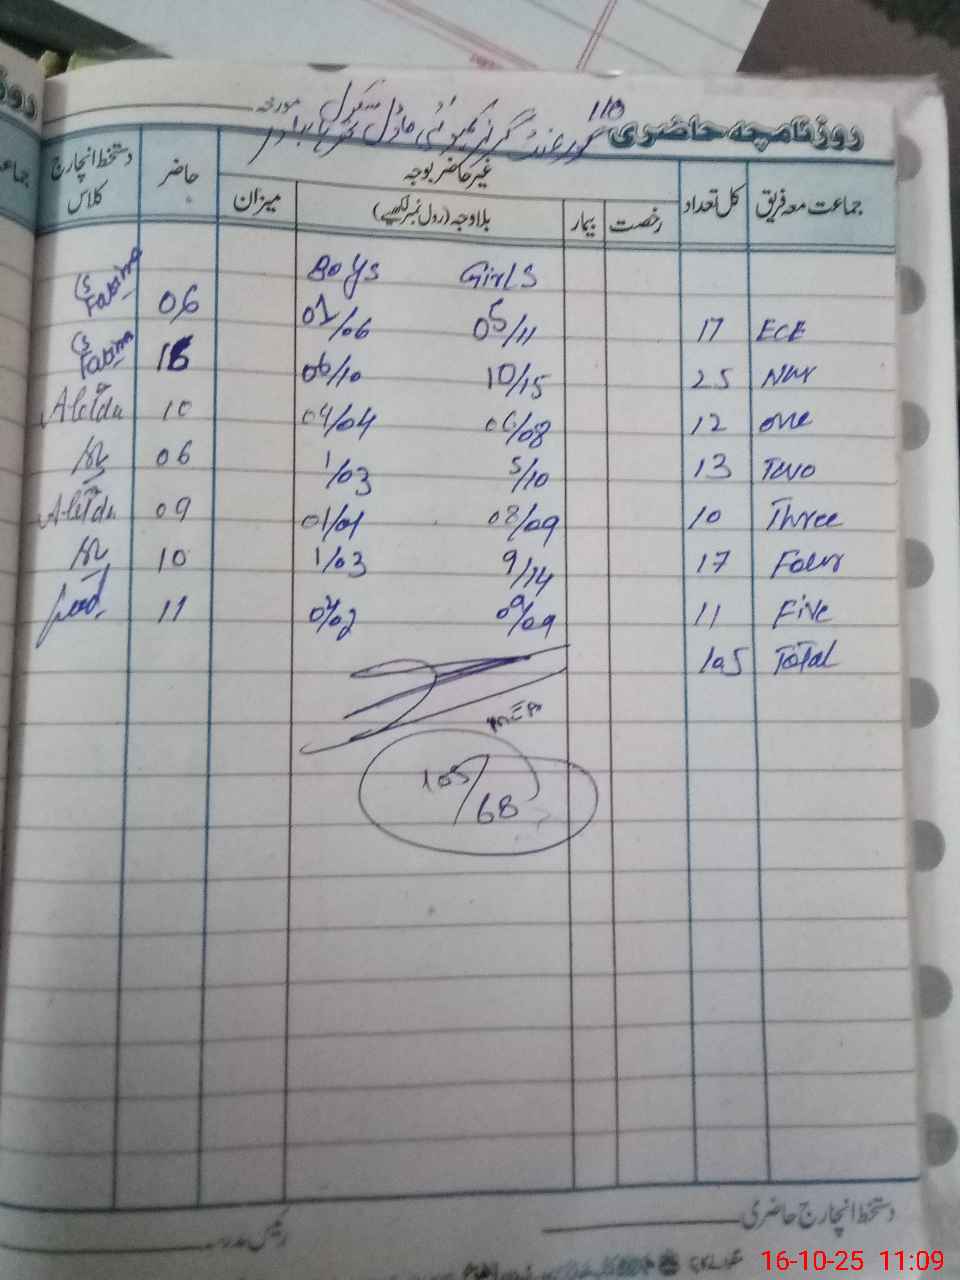 روزنامچہ حاضری
110
گورنمنٹ گرلز کمیونٹی ماڈل سکول
مورخہ
جماعت معہ فریق کل تعداد غیر حاضر بوجہ حاضر دستخط انچارج کلاس
رخصت بیمار بلاوجہ (رول نمبر لکھیے) میزان
Boys Girls
Fatima 06 01/06 05/11 17 ECE
Fatima 16 06/10 10/15 25 Nur
10 04/04 06/08 12 one
06 1/03 5/10 13 Two
09 01/01 08/09 10 Three
10 1/03 9/14 17 Four
11 02/02 09/09 11 Five
105 Total
105/68
دستخط انچارج حاضری
رئیس مدرسہ
16-10-25 11:09